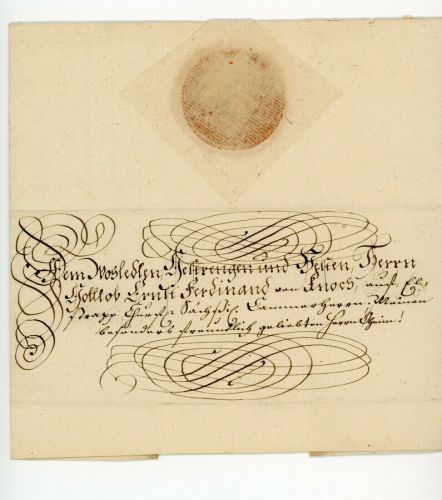 Dem Wohledlen, Gestrengen und Vesten, Herrn
Gottlob Ernst Ferdinand von Knoch, auf El-
Chur Sächß. Cammerherrn, Meinen
besonders freundlich geliebten Herrn